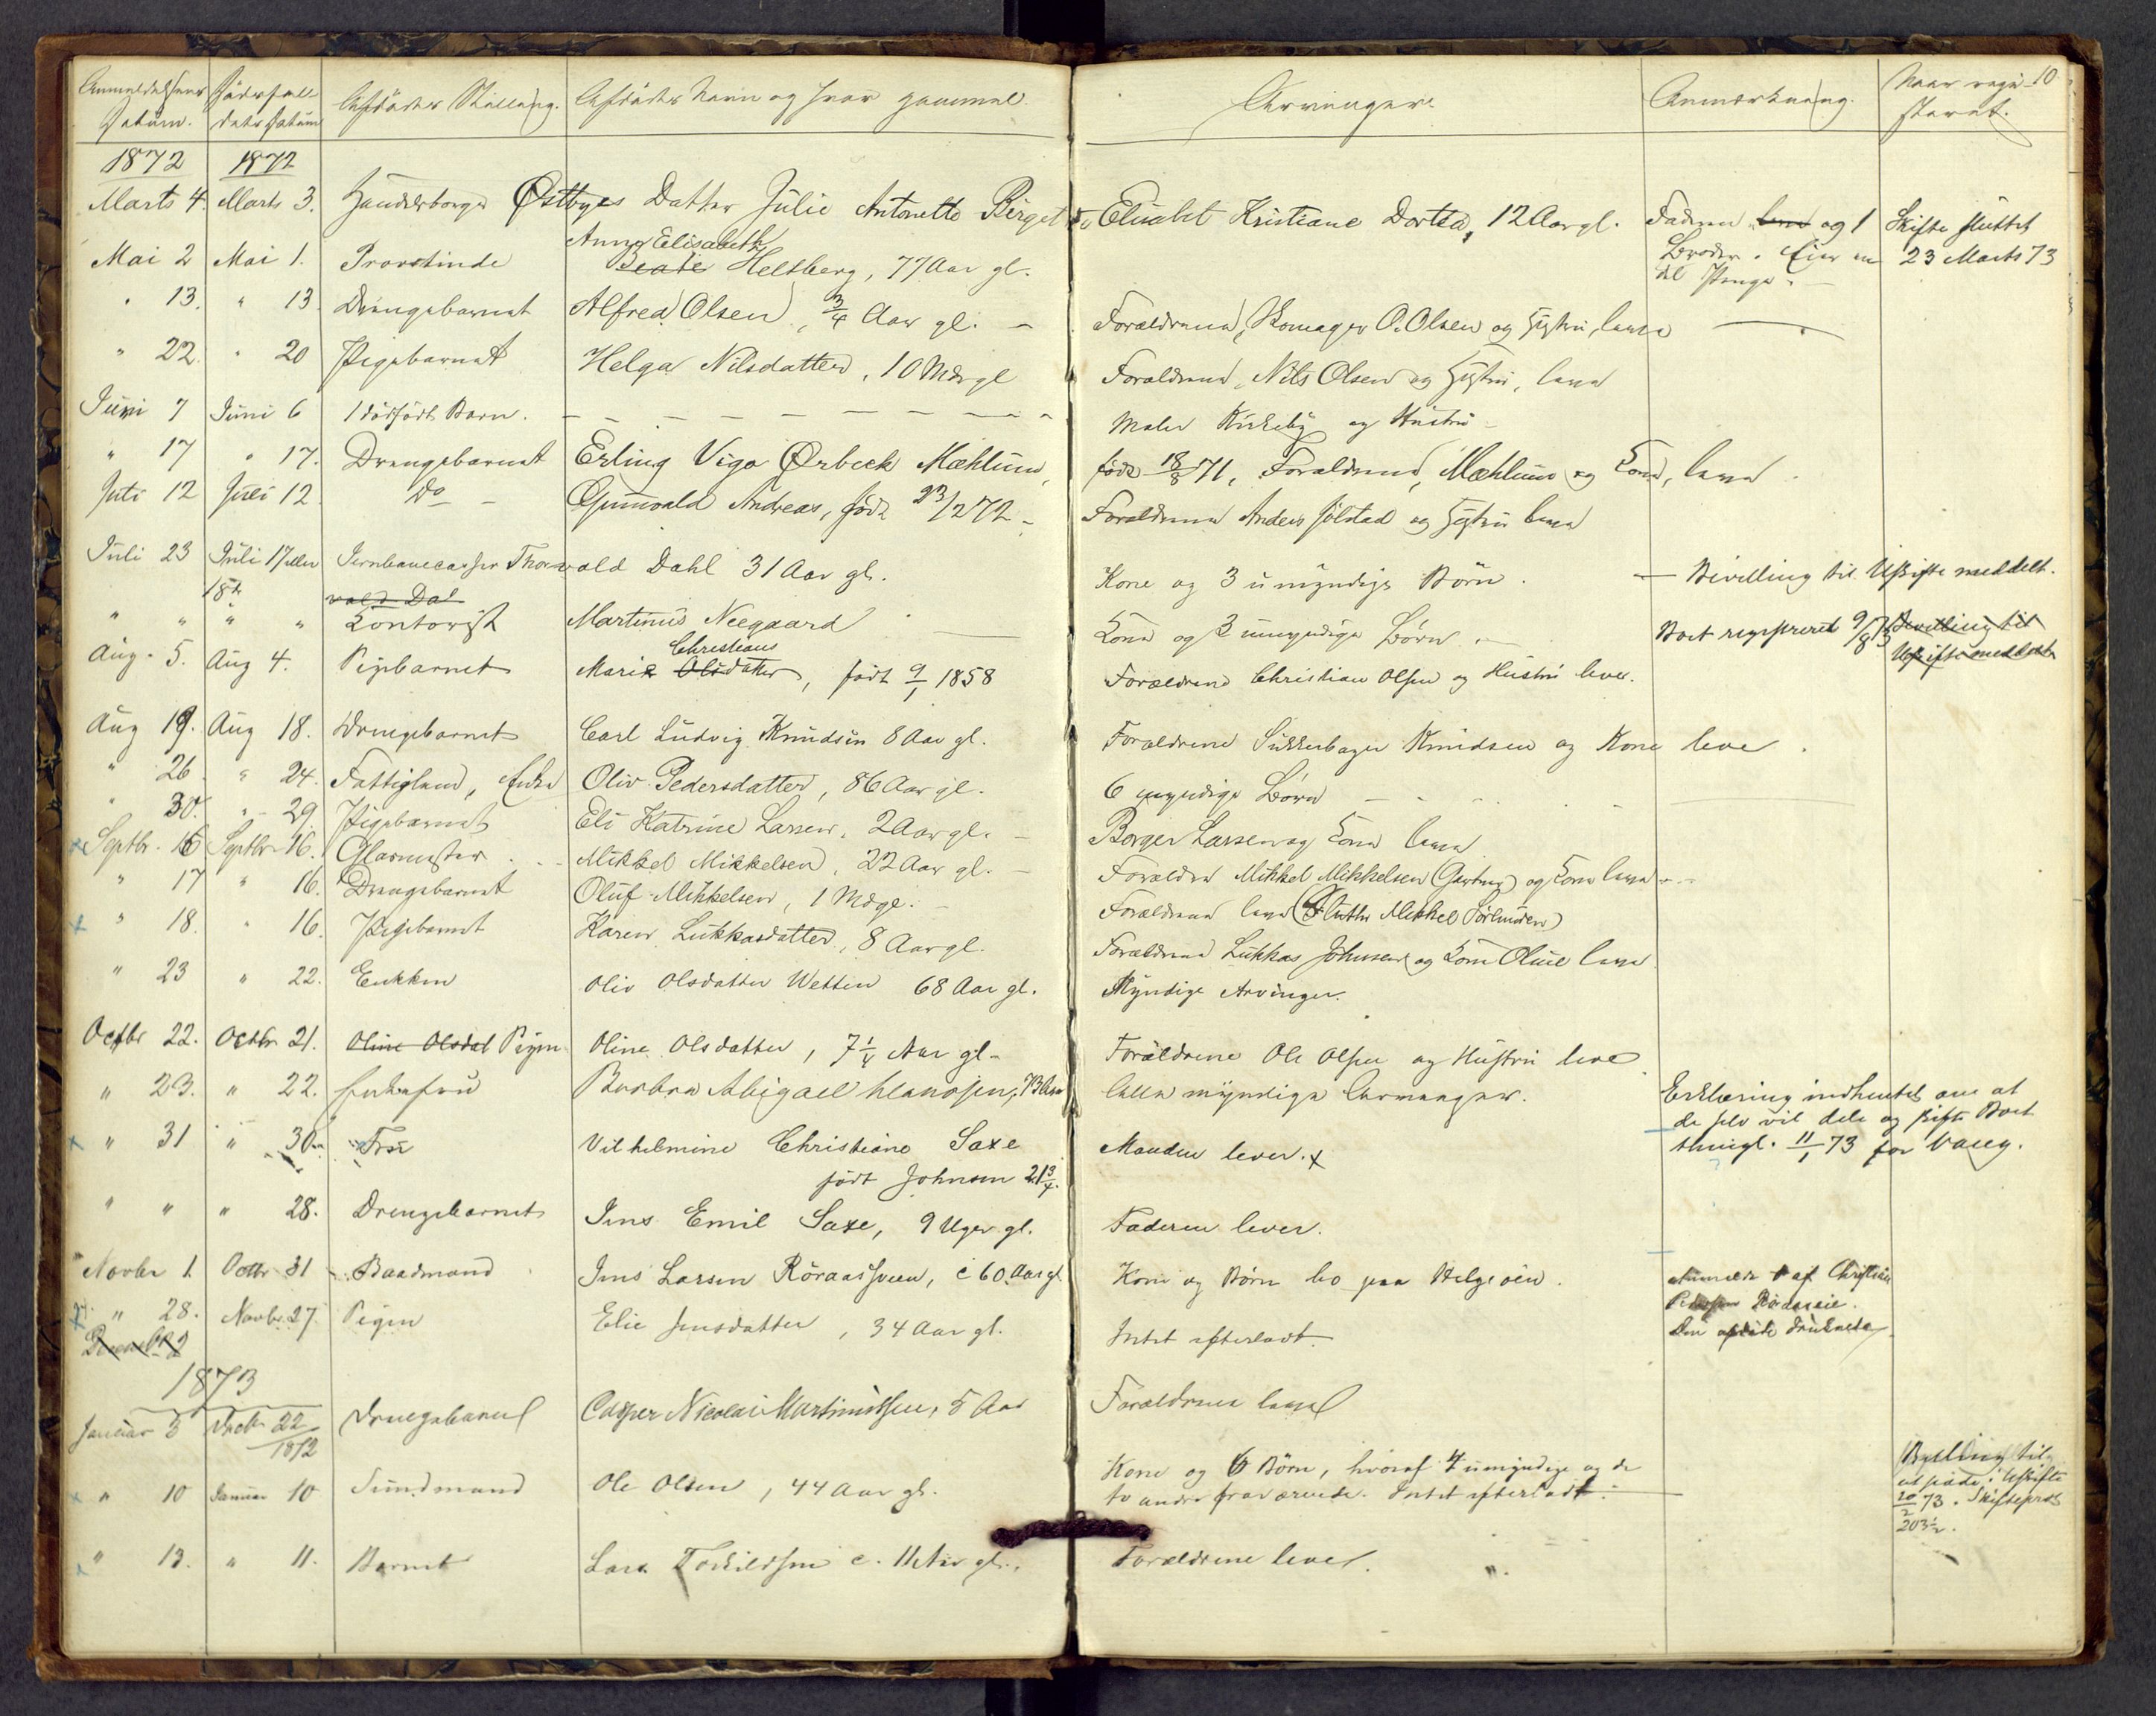 Anmeldelsens Dødsfall
Datum. dets Datum Afdødes Stilling. Afdødes Navn og hvor gammel. Arvinger. Anmærkning. Naar regi- 10
steret.
1872 1872
Marts 4. Marts 3. Handelsborger Østbyes Datter Julie Antonette Birgette Elisabet Kristiane Dortea, 12 Aar gl. Faderen og 1 Skifte sluttet
Broder. Eier en 23 Marts 73
del Penge.
Anne Elisabeth
Mai 2 Mai 1. Provstinde Beate Heltberg, 77 Aar gl.
" 13. " 13 Drengebarnet Alfred Olsen, 3/4 Aar gl. - Forældrene, Skomager O. Olsen og Hustru, leve
" 22. " 20 Pigebarnet Helga Nilsdatter, 10 Mdr gl Forældrene, Nils Olsen og Hustru, leve
Juni 7 Juni 6 1 dødfødt Barn. Maler Kirkeby og Hustru
" 17 " 17. Drengebarnet Erling Vigo Ørbeck Mæhlum, født 18/8 71, Forældrene, Mæhlum og Kone, leve.
Juli 12 Juli 12. Do - Gunvald Andreas, født 23/2 72 - Forældrene Anders Jølstad og Hustru leve
Juli 23 Juli 17 eller Jernbanecasser Thorvald Dahl 31 Aar gl. Kone og 3 umyndige Børn. - Bevilling til Uskifte meddelt.
18de vald Dal
" " " " Kontorist Martinus Neegaard Kone og 3 umyndige Børn. Boet registreret 9/8 73 Bevilling til
Uskifte meddelt
Christians
Aug. 5. Aug 4. Pigebarnet Marie Olsdatter, født 9/1 1858 Forældrene Christian Olsen og Hustru lever.
Aug 19. Aug 18. Drengebarnet Carl Ludvig Knudsen 8 Aar gl. Forældrene Sukkerbager Knudsen og Kone leve.
" 26. " 24. Fattiglem, Enke Oliv Pedersdatter, 86 Aar gl. 6 myndige Børn
" 30. " 29. Pigebarnet Eli Katrine Larsen, 2 Aar gl. - Borger Larsen og Kone leve
Septbr. 16 Septbr 16. Glarmester Mikkel Mikkelsen, 22 Aar gl. - Forældre Mikkel Mikkelsen (Gartner) og Kone leve
" 17 " 16. Drengebarnet Oluf Mikkelsen, 1 Md gl. - Forældrene leve (Mikkel Sørlunden)
" 18. " 16. Pigebarnet Karen Lukkasdatter, 8 Aar gl. Forældrene Lukkas Johnsen og Kone Oline leve
" 23 " 22. Enken Oliv Olsdatter Wetten 68 Aar gl. Myndige Arvinger.
Octbr 22. Octbr 21. Oline Olsdat Pigen Oline Olsdatter, 7 1/4 Aar gl - Forældrene Ole Olsen og Hustru leve
" 23. " 22. Enkefru Barbra Abigael Clausjen, 73 Aar Alle myndige Arvinger. Erklæring indhentet om at
de selv vil dele og skifte Boet
thingl. 11/1 73 for Vang.
" 31 " 30. Fru Vilhelmine Christiane Saxe Manden lever. x
født Johnsen 21 3/4.
" " " 28. Drengebarnet Jens Emil Saxe, 9 Uger gl. Faderen lever.
Novbr 1. Octbr 31 Baadmand Jens Larsen Røraassveen, c 60 Aar gl. Kone og Børn bo paa Helgeøen. Anmeldt af Christian
Den afdøde druknede
" 28. Novbr. 27. Pigen Elie Jensdatter, 34 Aar gl. Intet efterladt.
Decemb 2
1873
Januar 3 Decbr 22 Drengebarnet Casper Nicolai Martinussen, 5 Aar Forældrene leve
1872
" 10 Januar 10 Sundmand Ole Olsen, 44 Aar gl. Kone og 6 Børn, hvoraf 4 umyndige og de Bevilling til
to andre fraværende. Intet efterladt. at sidde i Uskifte
20/2 73. Skifteprot
203 1/2.
" 13. " 11. Barnet Lars Torkildsen c. 11 Aar gl. Forældrene lever.